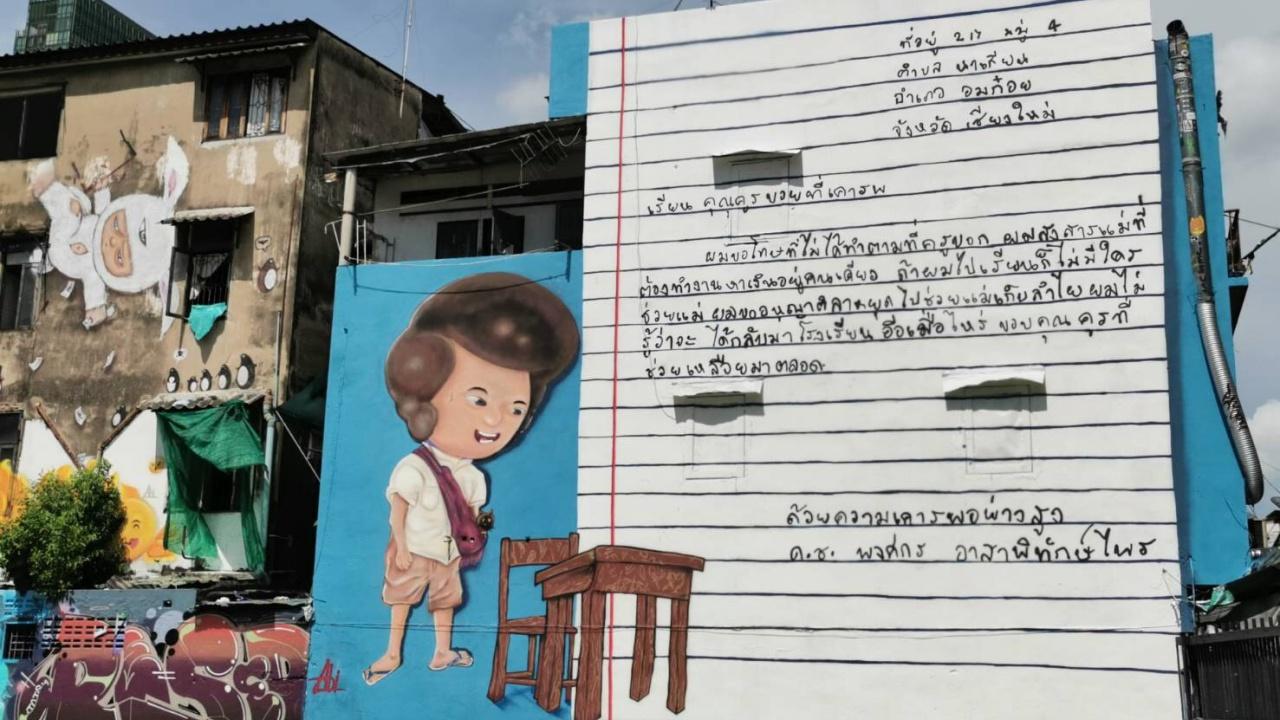 ที่อยู่ 217 หมู่ 4
ตำบล นาเกียน
อำเภอ อมก๋อย
จังหวัด เชียงใหม่
เรียน คุณครูขวยที่เคารพ
ผมขอโทษที่ไม่ได้ทำตามที่ครูบอก ผมสงสารแม่ที่
ต้องทำงานหาเงินอยู่คนเดียว ถ้าผมไปเรียนก็ไม่มีใคร
ช่วยแม่ ผมขออนุญาติลาหยุดไปช่วยแม่เก็บลำไย ผมไม่
รู้ว่าจะ ได้กลับมาโรงเรียน อีกเมื่อไหร่ ขอบคุณ คุรที่
ช่วยเหลือผมมาตลอด
ด้วยความเคารพอย่างสูง
ด.ช. พงศกร อาสาพิทักษ์ไพร